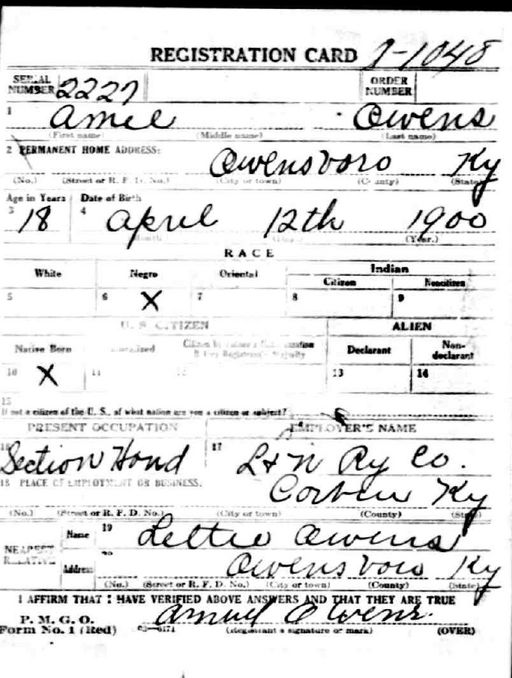 REGISTRATION CARD 1-1048
SERIAL NUMBER 2227 ORDER NUMBER
1 Amel Owens
(First name) (Middle name) (Last name)
2 PERMANENT HOME ADDRESS: Owensboro Ky
(No.) (Street or R. F. D. No.) (City or town) (County) (State)
Age in Years Date of Birth
3 18 4 April 12th 1900
(Month) (Day.) (Year.)
RACE
White Negro Oriental Indian
Citizen Noncitizen
5 6 X 7 8 9
U. S. CITIZEN ALIEN
Native Born Naturalized Citizen by Father's Naturalization Before Registrant's Majority Declarant Non-declarant
10 X 11 12 13 14
15
If not a citizen of the U. S., of what nation are you a citizen or subject?
PRESENT OCCUPATION EMPLOYER'S NAME
16 Section Hand 17 L & N Ry Co.
18 PLACE OF EMPLOYMENT OR BUSINESS: Corbin Ky
(No.) (Street or R. F. D. No.) (City or town) (County) (State)
NEAREST RELATIVE Name 19 Lettie Owens
Address 20 Owensboro Ky
(No.) (Street or R. F. D. No.) (City or town) (County) (State)
I AFFIRM THAT I HAVE VERIFIED ABOVE ANSWERS AND THAT THEY ARE TRUE
P. M. G. O.
Form No. 1 (Red) 03—6171 Amuel Owens
(Registrant's signature or mark) (OVER)